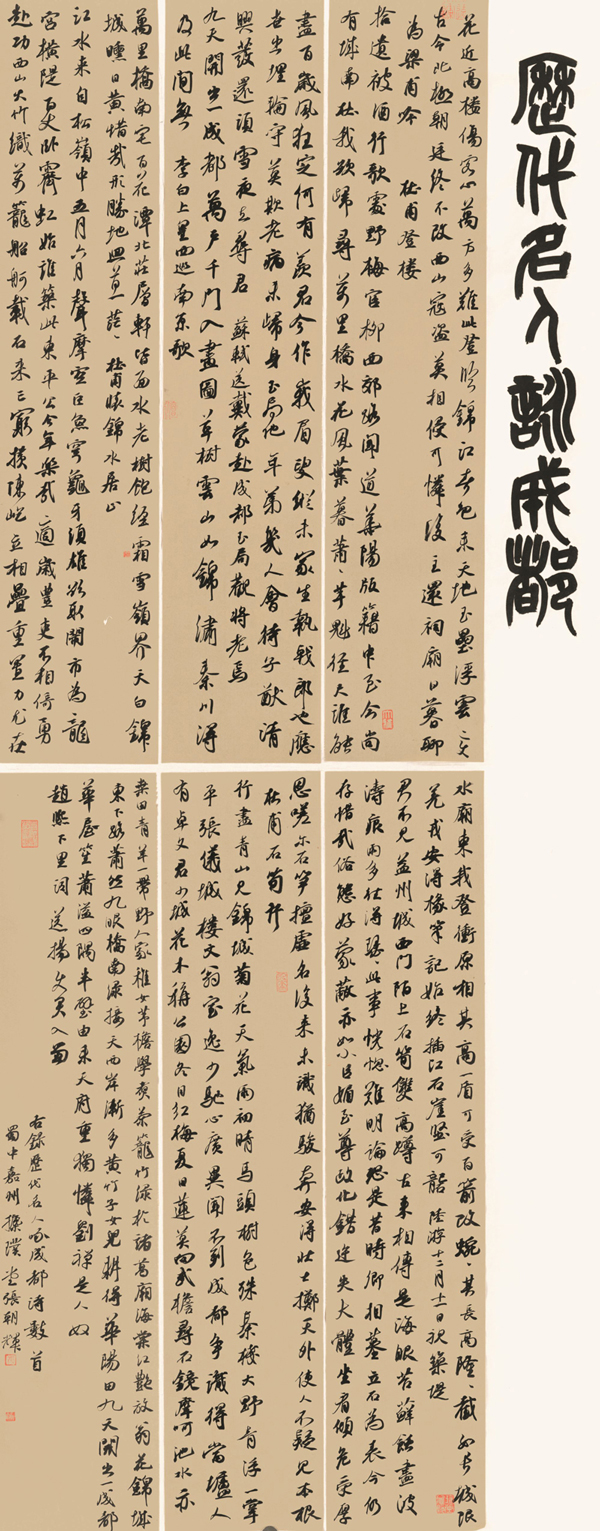 歷代名人詠成都
花近高樓傷客心萬方多難此登臨錦江春色來天地玉壘浮雲變
古今北極朝廷終不改西山寇盜莫相侵可憐後主還祠廟日暮聊
為梁甫吟 杜甫登樓
拾遺被酒行歌處野梅官柳西郊路聞道華陽版籍中至今尚
有城南杜我欲歸尋萬里橋水花風葉暮蕭蕭芋魁徑尺誰能
盡百歲風狂定何有羨君今作峨眉叟縱未家生執戟郎也應
世出埋輪守莫欺老病未歸身玉局他年第幾人會待子猷清
興發還須雪夜去尋君 蘇軾送戴蒙赴成都玉局觀將老焉
九天開出一成都萬戶千門入畫圖草樹雲山如錦繡秦川得
及此間無 李白上皇西巡南京歌
萬里橋南宅百花潭北莊層軒皆面水老樹飽經霜雪嶺界天白錦
城曛日黃惜哉形勝地回首一茫茫 杜甫懷錦水居止
江水來自松嶺中五月六月聲摩空巨魚穹龜牙須雄欲取闤市為龍
宮橫堤百丈臥霽虹始誰築此東平公今年樂哉適歲豐吏不相倚勇
赴功西山大竹織萬籠船舸載石來無窮橫陳屹立相疊重置力尤在
水廟東我登衝原相其高一盾可受百箭攻蜿蜿其長高隆隆截如長城限
羌戎安得椽筆記始終插江石崖堅可礱 陸游十二月十一日視築堤
君不見益州城西門陌上石筍雙高蹲古來相傳是海眼苔蘚蝕盡波
濤痕雨多往往得瑟瑟此事恍惚難明論恐是昔時卿相墓立石為表今仍
存惜哉俗態好蒙蔽亦如小臣媚至尊政化錯迕失大體坐看傾危受厚
恩嗟爾石筍擅虛名後來未識猶駿奔安得壯士擲天外使人不疑見本根
杜甫石筍行
行盡青山見錦城菊花天氣雨初晴馬頭樹色殊秦棧大野青浮一掌
平張儀城樓文翁室逸少馳心廣異聞不到成都爭識得當壚人
有卓文君少城花木稱公園冬日紅梅夏日蓮莫向武擔尋石鏡摩訶池水亦
桑田青羊一帶野人家稚女茅檐學煮茶籠竹綠於諸葛廟海棠江艷放翁花錦城
東下路蕭然九眼橋南淥接天兩岸漸多黃竹子女兒耕得華陽田九天開出一成都
華屋笙簫溢四隅半壁由來天府重獨憐劉禪是人奴
趙熙下里詞 送楊使君入蜀
右錄歷代名人詠成都詩數首
蜀中嘉州樸璞堂張朝輝